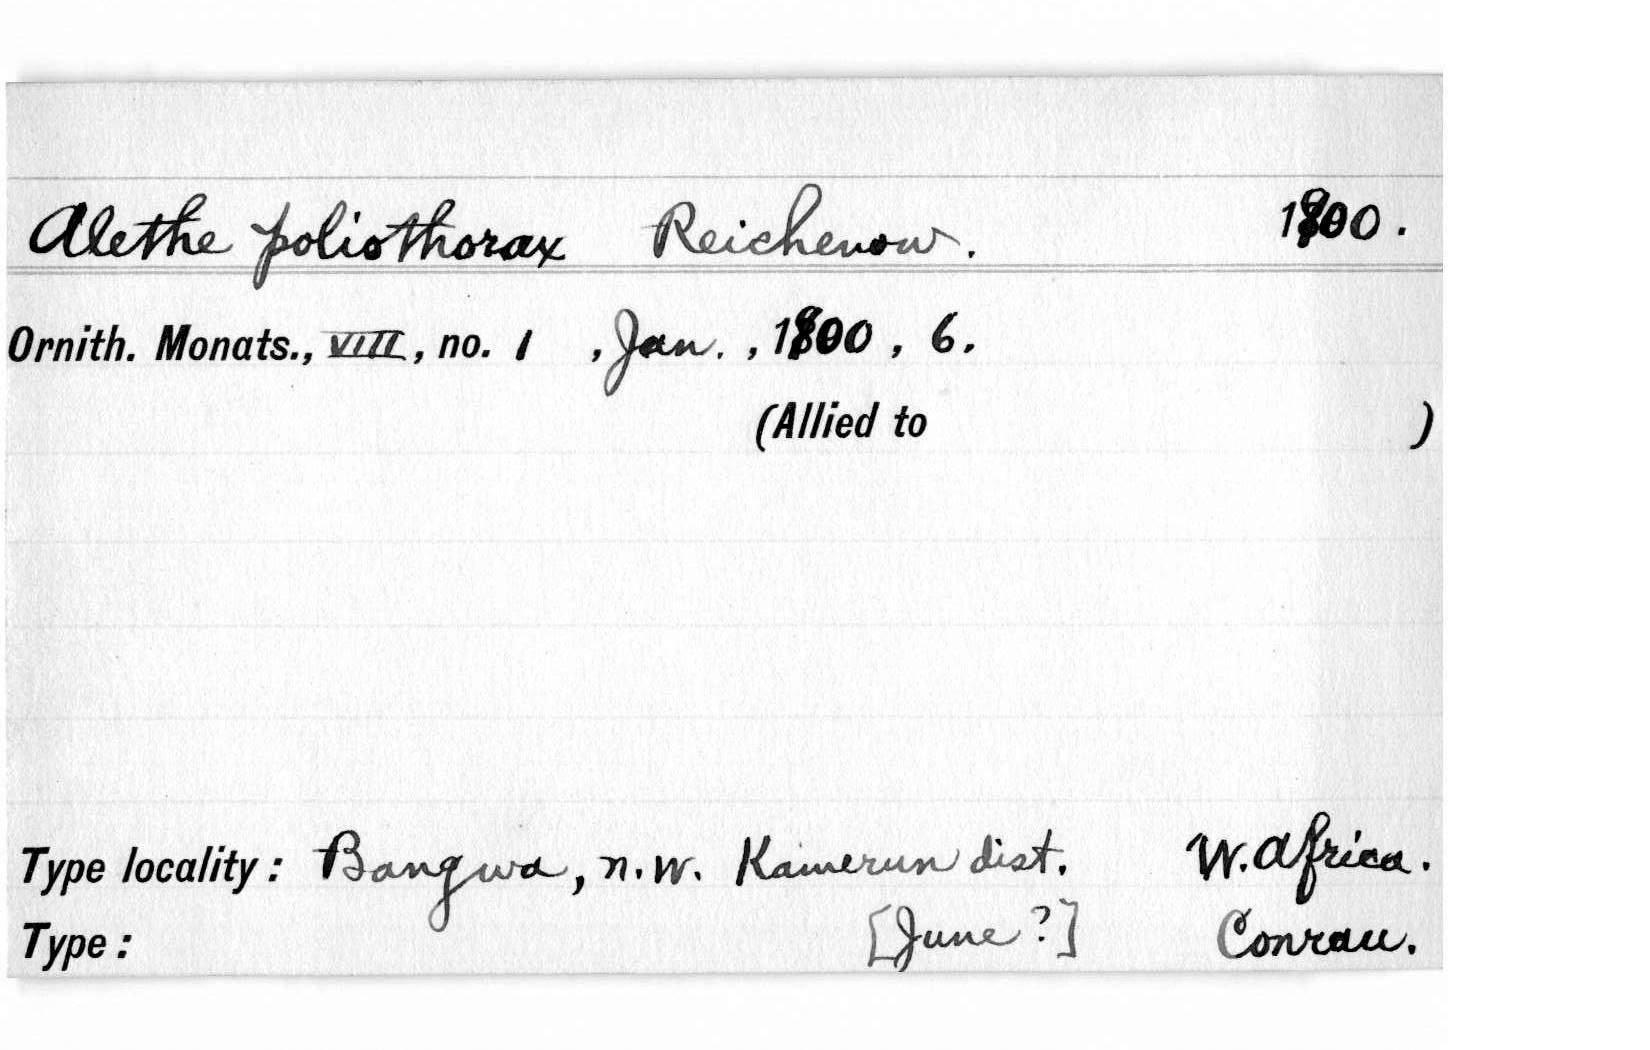 Alethe poliothorax Reichenow. 1900.
Ornith. Monats., VIII, no. 1 , Jan. , 1900 , 6.
(Allied to )
Type locality: Bangwa, n.w. Kamerun dist. W. Africa.
Type: [June?] Conrau.